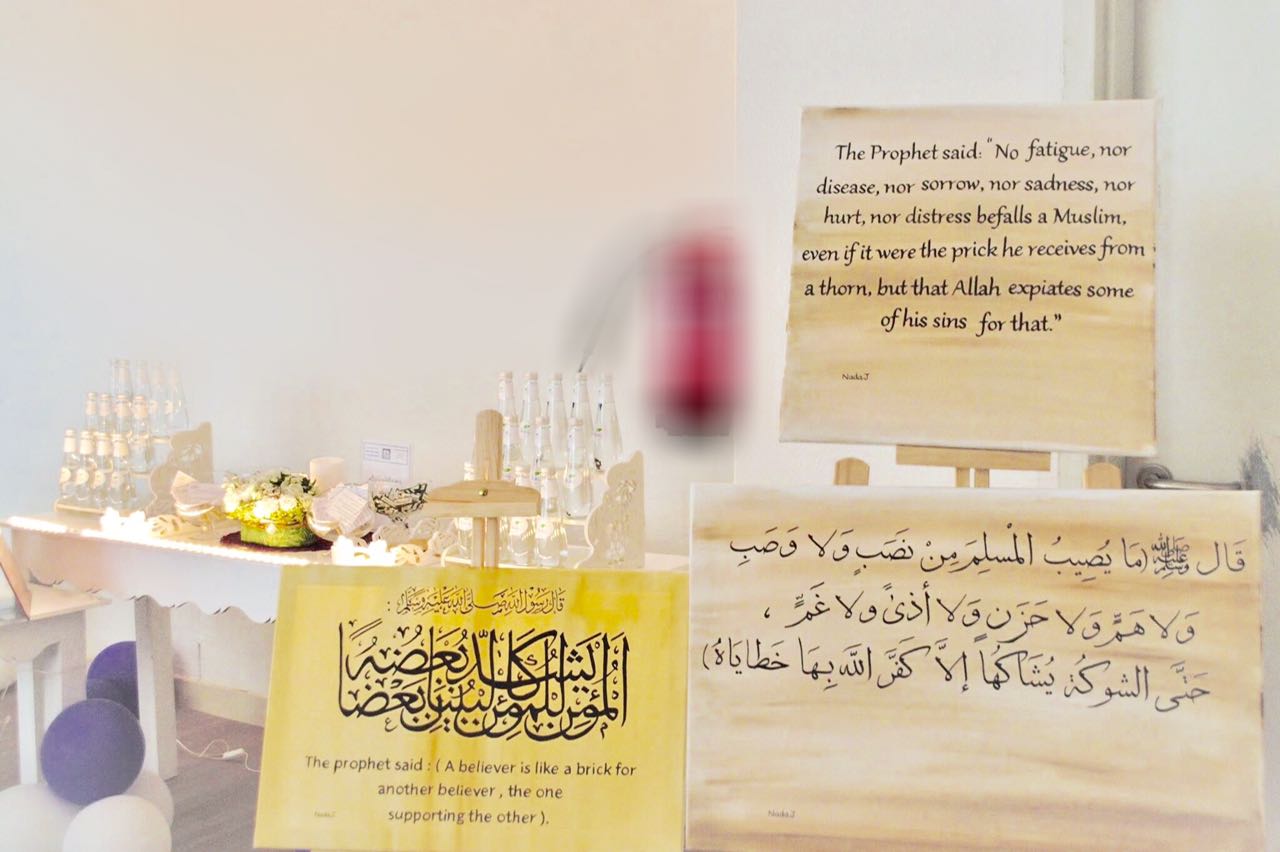 The Prophet said: "No fatigue, nor
disease, nor sorrow, nor sadness, nor
hurt, nor distress befalls a Muslim,
even if it were the prick he receives from
a thorn, but that Allah expiates some
of his sins for that."
Nada.J
قَال ﷺ (مَا يُصِيبُ المْسلِمَ مِنْ نَصَبٍ وَلا وَصَبِ
وَلا هَمٍّ وَلا حَزَن وَلا أذىً ولا غَمٍّ ،
حَتَّى الشوكةُ يُشَاكهُاَ إلاَّ كفَّرَ اللَّه بِهَا خَطايَاهُ)
Nada.J
قال رسول الله صلى الله عليه وسلم :
المؤمن للمؤمن كالبنيان يشد بعضه بعضا
The prophet said : ( A believer is like a brick for
another believer , the one
supporting the other ).
Nada.J